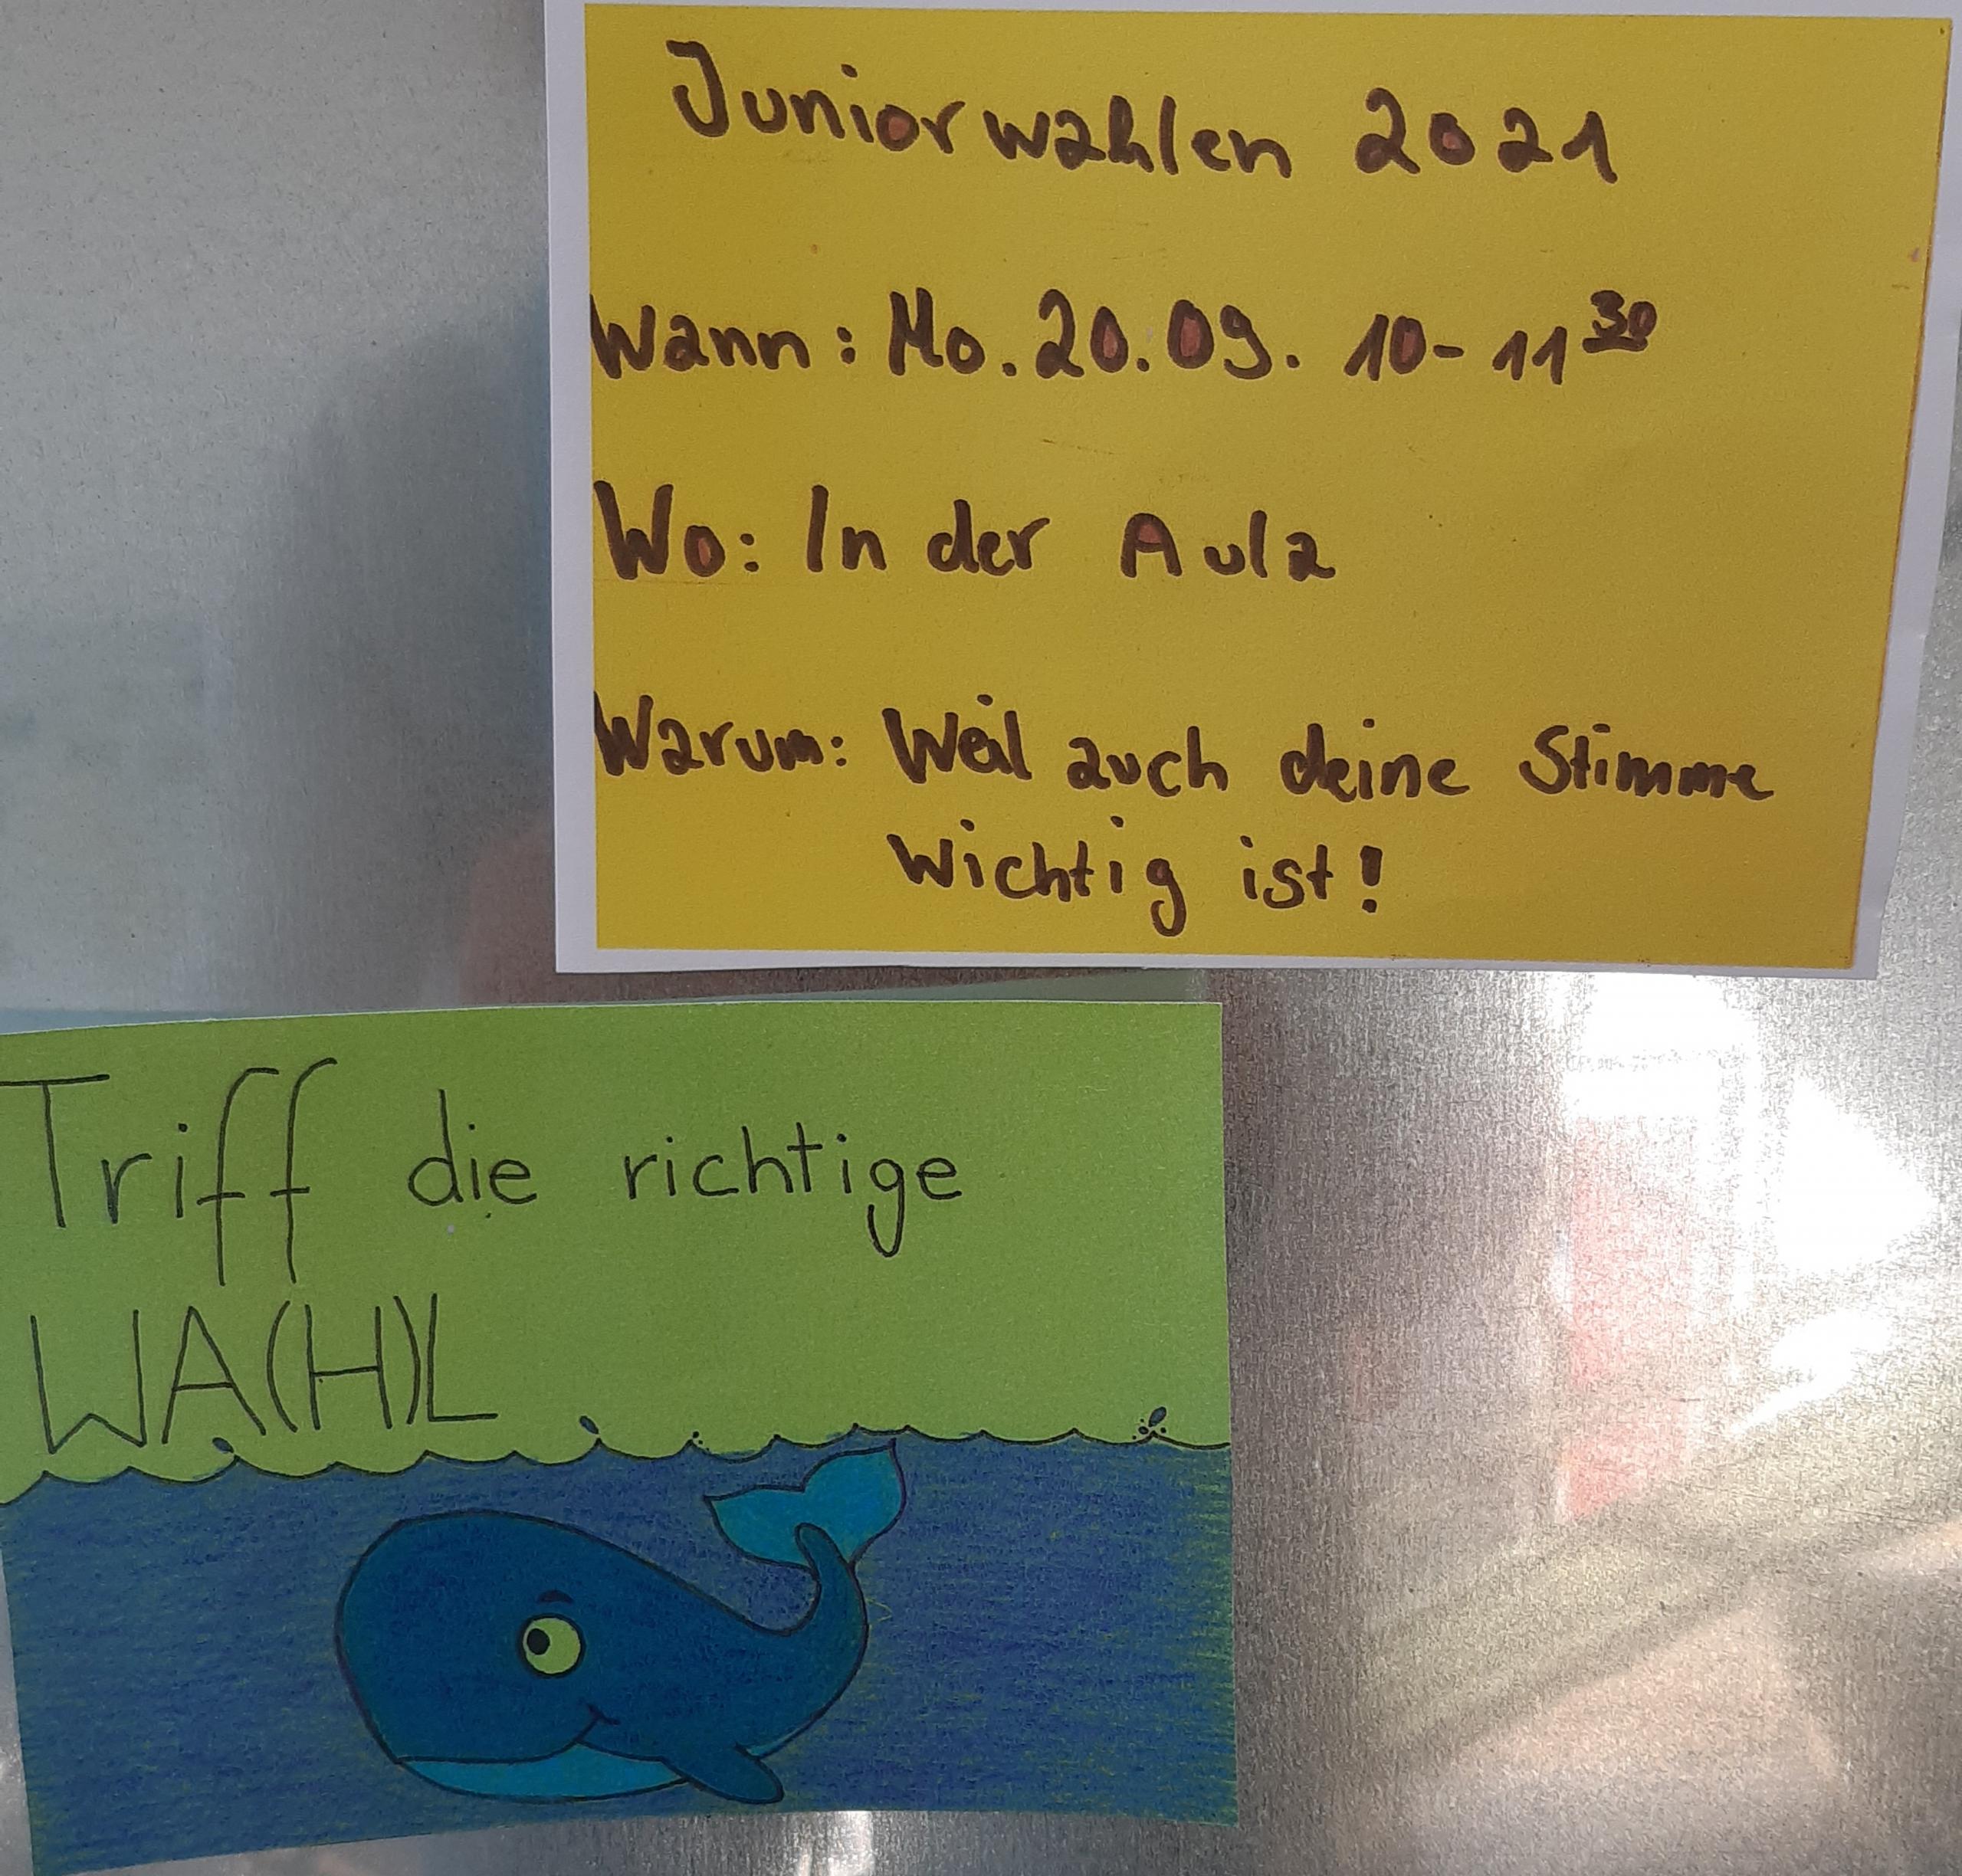 Juniorwahlen 2021
Wann: Mo. 20.09. 10-11³⁰
Wo: In der Aula
Warum: Weil auch deine Stimme
Wichtig ist!
Triff die richtige
WA(H)L